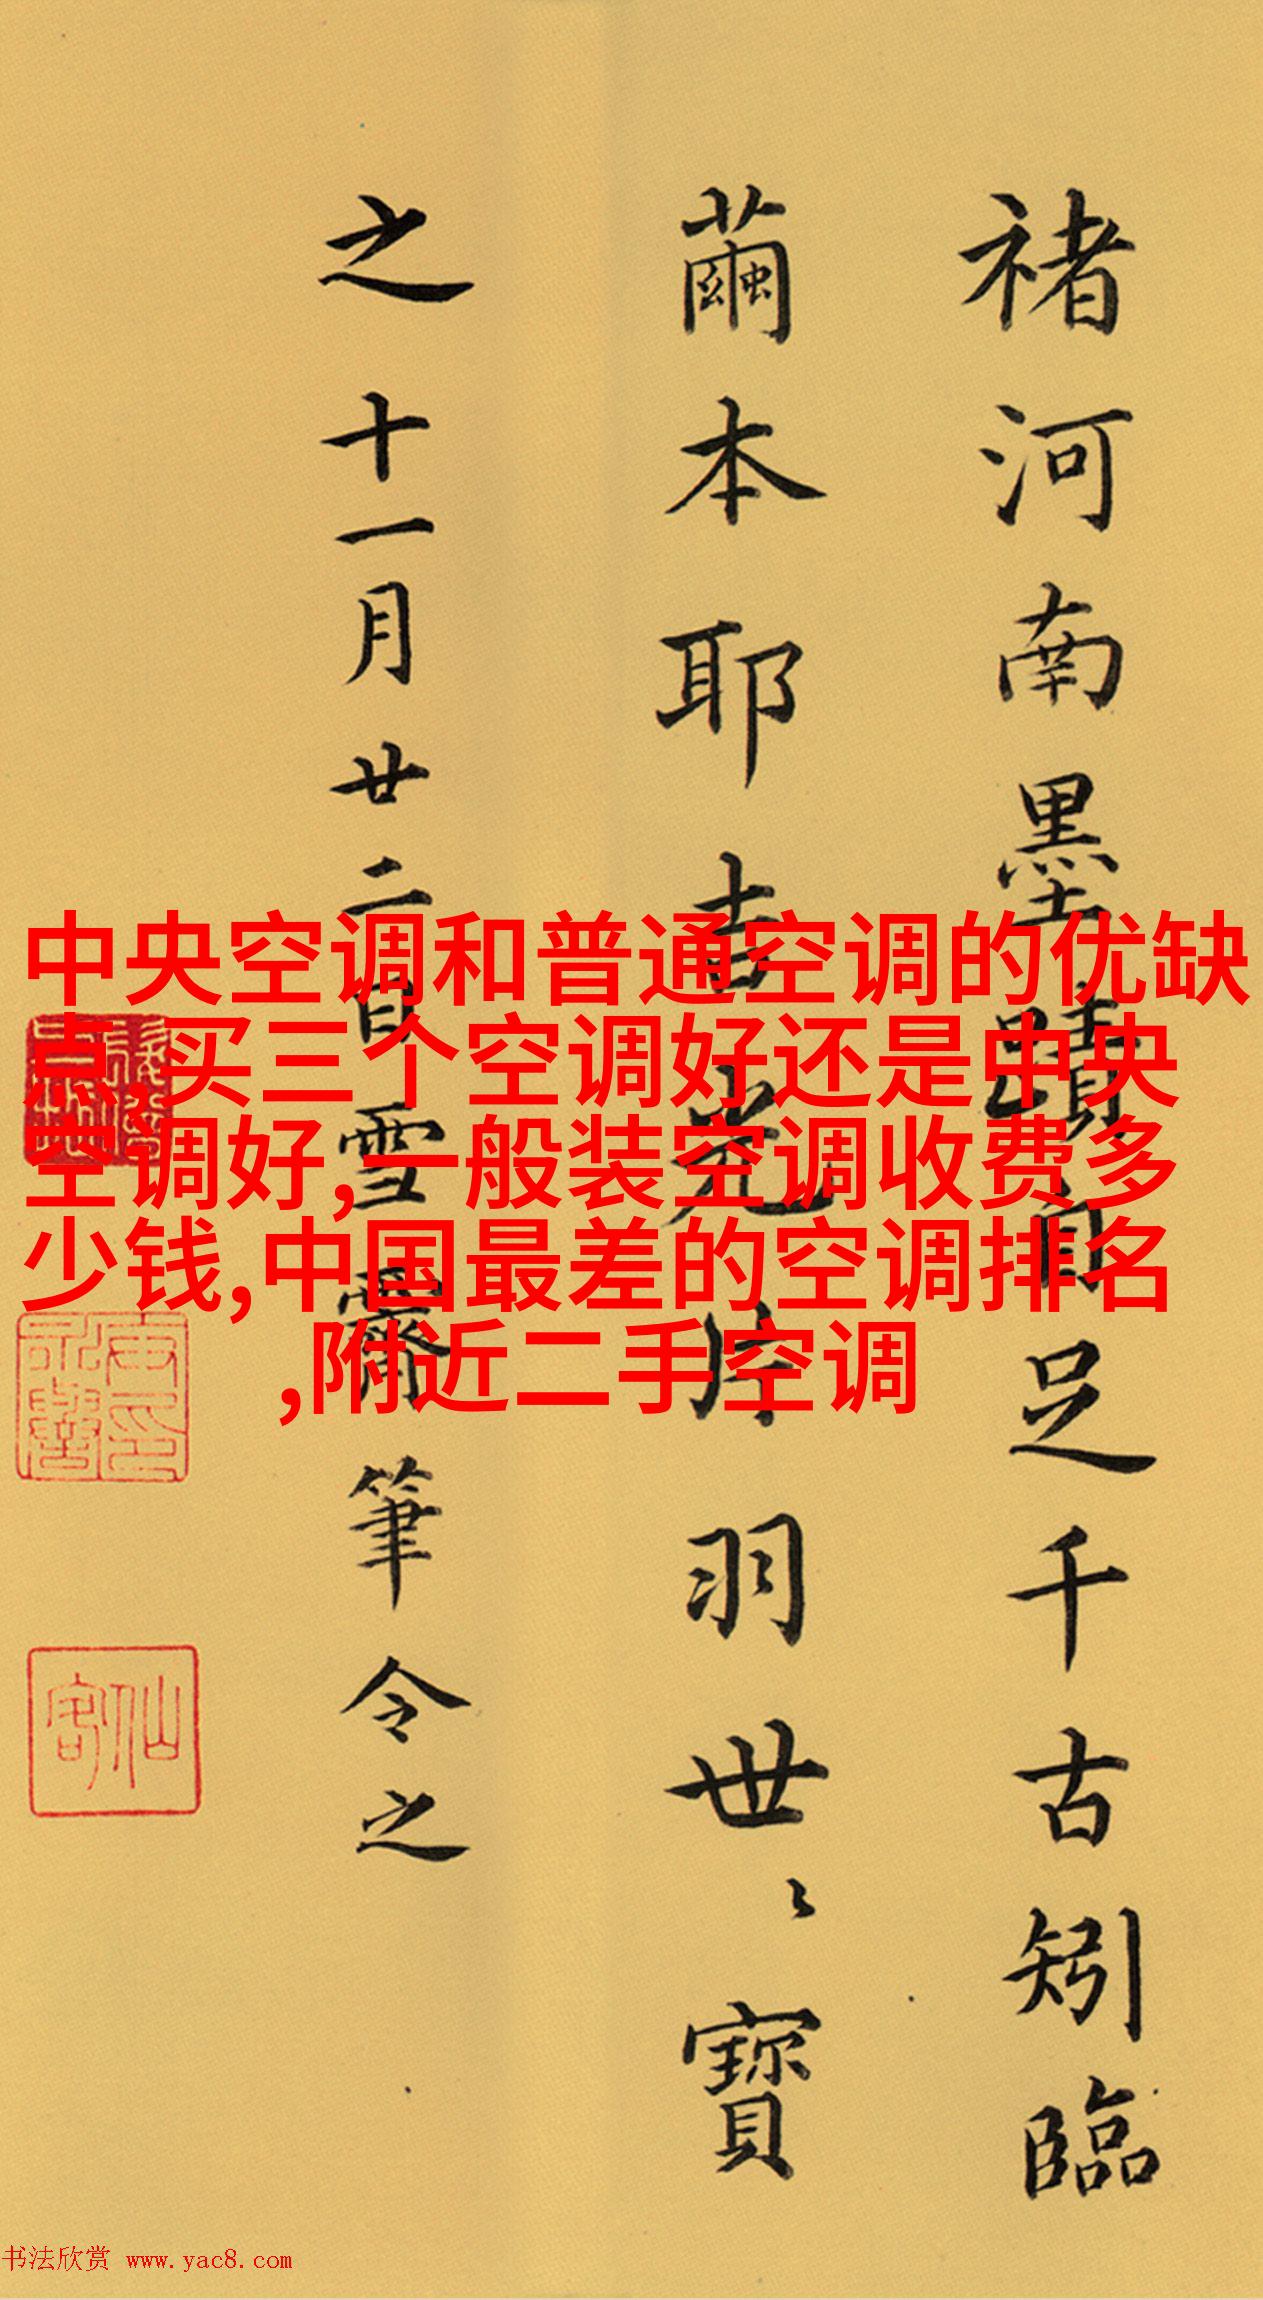 褚河南墨蹟自足千古矧臨
繭本耶吉光片羽世〻寶
之十一月廿二日雪霽筆令之
中央空调和普通空调的优缺
点,买三个空调好还是中央
空调好,一般装空调收费多
少钱,中国最差的空调排名
,附近二手空调
仙客
书法欣赏 www.yac8.com